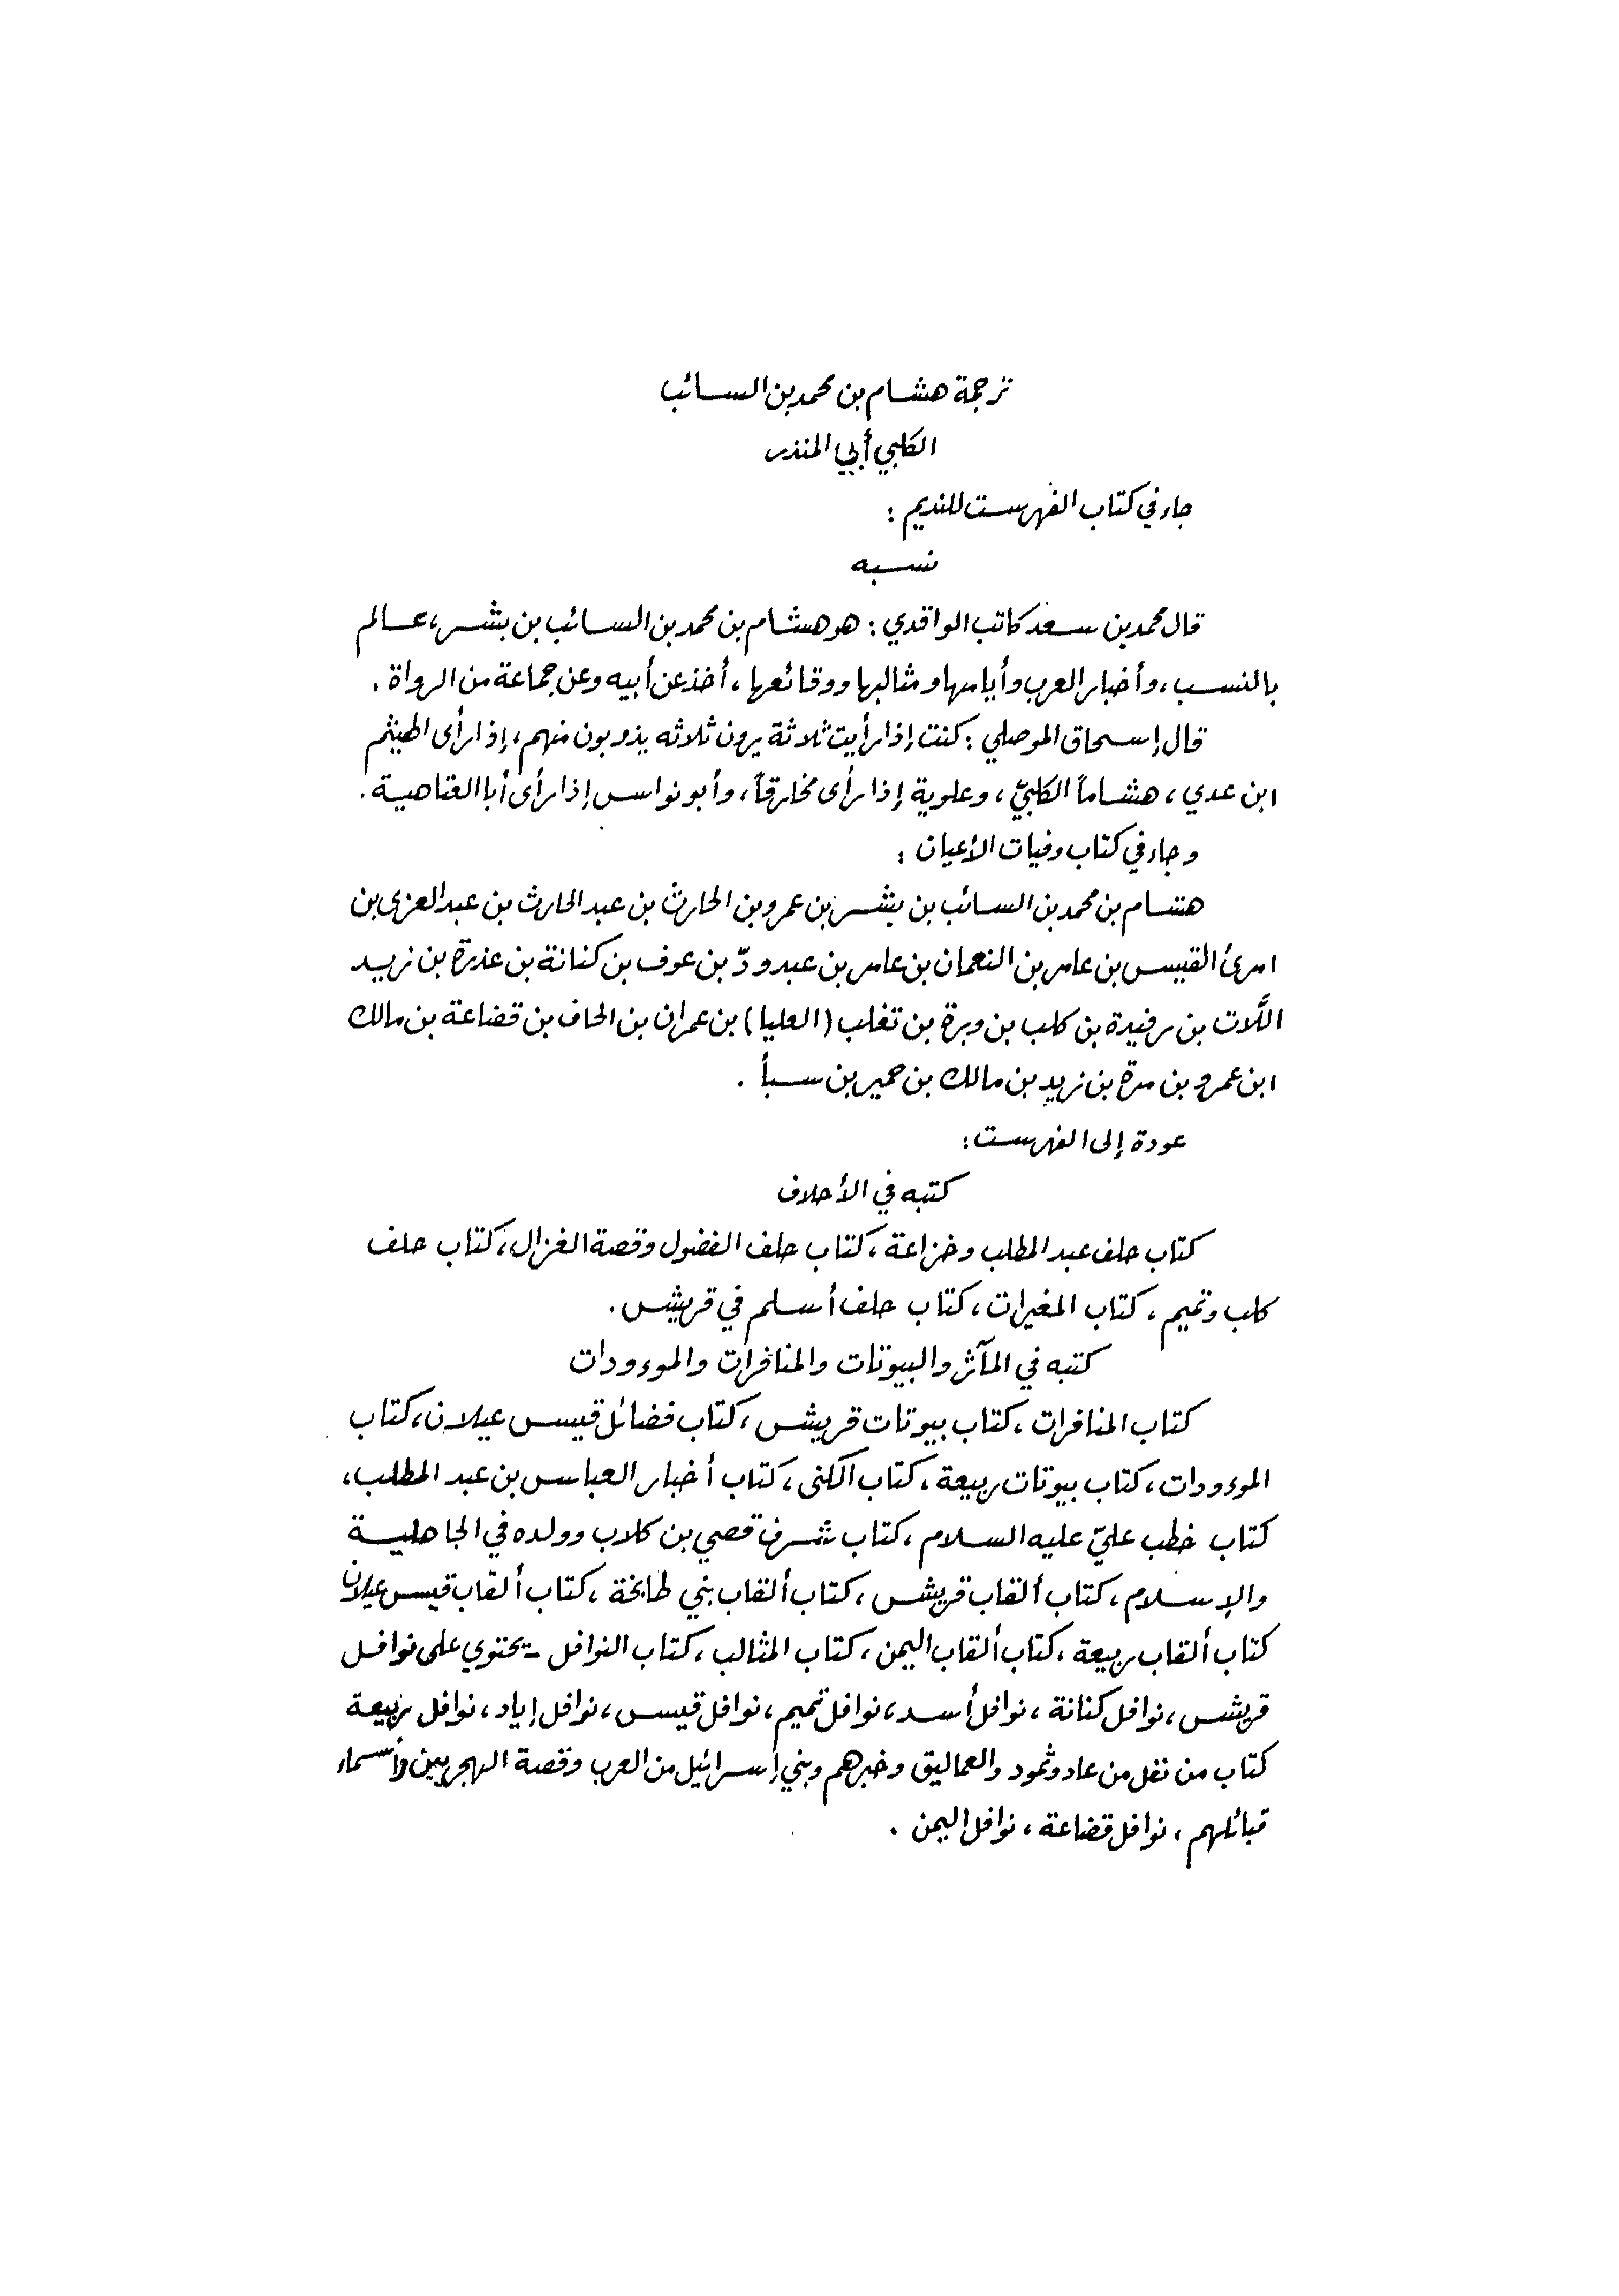 ترجمة هشام بن محمد بن السائب
الكلبي أبي المنذر
جاء في كتاب الفهرست للنديم :
نسبه
قال محمد بن سعد كاتب الواقدي : هو هشام بن محمد بن السائب بن بشر، عالم
بالنسب، وأخبار العرب وأيامها ومثالبها ووقائعها ، أخذ عن أبيه وعن جماعة من الرواة .
قال إسحاق الموصلي : كنت إذا رأيت ثلاثة يرون ثلاثه يذوبون منهم ، إذا رأى الهيثم
ابن عدي ، هشاماً الكلبيّ ، وعلوية إذا رأى مخارقاً ، وأبو نواس إذا رأى أبا العتاهية .
وجاء في كتاب وفيات الأعيان :
هشام بن محمد بن السائب بن بشر بن عمرو بن الحارث بن عبد الحارث بن عبد العزى بن
امرئ القيس بن عامر بن النعمان بن عامر بن عبد ودّ بن عوف بن كنانة بن عذرة بن زيد
اللّات بن رفيدة بن كلب بن وبرة بن تغلب (العليا) بن عمران بن الحاف بن قضاعة بن مالك
ابن عمرو بن مرة بن زيد بن مالك بن حمير بن سبأ .
عودة إلى الفهرست :
كتبه في الأحلاف
كتاب حلف عبد المطلب وخزاعة ، كتاب حلف الفضول وقصة الغزال ، كتاب حلف
كلب وتميم ، كتاب المغيرات ، كتاب حلف أسلم في قريش .
كتبه في المآثر والبيوتات والمنافرات والموءودات
كتاب المنافرات ، كتاب بيوتات قريش ، كتاب فضائل قيس عيلان ، كتاب
الموءودات ، كتاب بيوتات ربيعة ، كتاب الكنى ، كتاب أخبار العباس بن عبد المطلب ،
كتاب خطب عليّ عليه السلام ، كتاب شرف قصي بن كلاب وولده في الجاهلية
والإسلام ، كتاب ألقاب قريش ، كتاب ألقاب بني طابخة ، كتاب ألقاب قيس عيلان
كتاب ألقاب ربيعة ، كتاب ألقاب اليمن ، كتاب المثالب ، كتاب النوافل - يحتوي على نوافل
قريش ، نوافل كنانة ، نوافل أسد ، نوافل تميم ، نوافل قيس ، نوافل إياد ، نوافل ربيعة
كتاب من نفل من عاد وثمود والعماليق وخبرهم وبني إسرائيل من العرب وقصة الهجريين وأسماء
قبائلهم ، نوافل قضاعة ، نوافل اليمن .